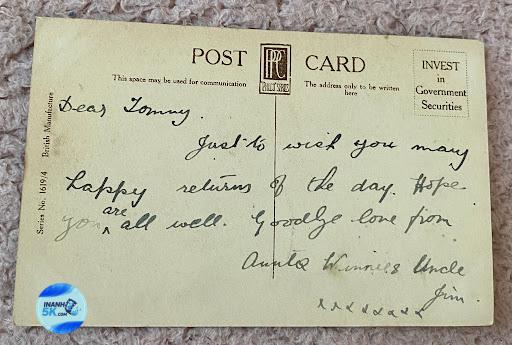 POST CARD
This space may be used for communication
The address only to be written here
INVEST
in
Government
Securities
British Manufacture
Series No. 1619/4
Dear Tommy.
Just to wish you many
happy returns of the day. Hope
you are all well. Goodbye love from
Auntie Winnies Uncle
Jim.
x x x x x x x x
INANH
5K.COM